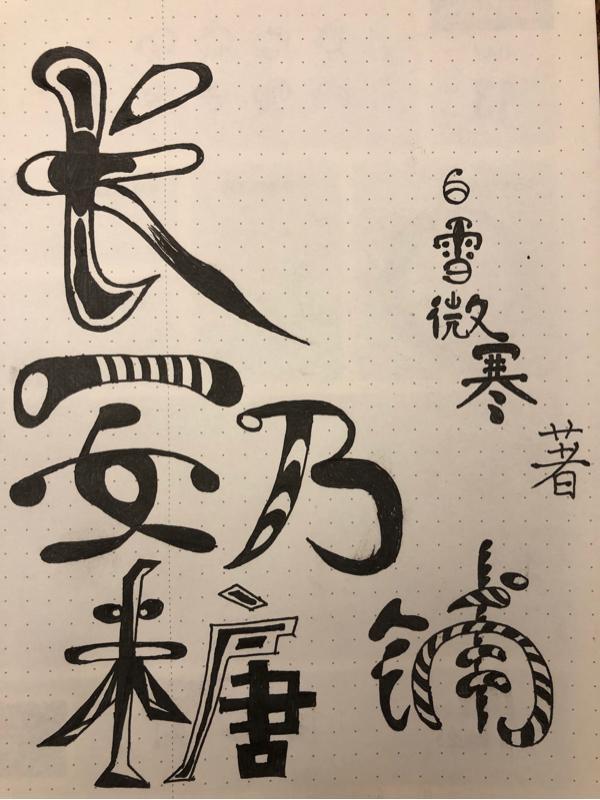 长
安乃
糖铺
白雪微寒
著